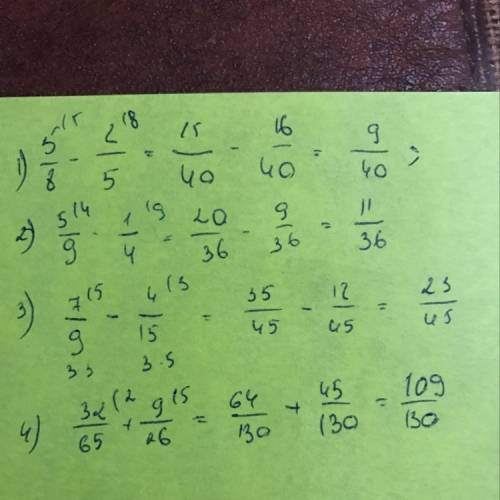 1) 5/8 (5 - 2/5 (8 = 15/40 - 16/40 = 9/40 ;
2) 5/9 (4 - 1/4 (9 = 20/36 - 9/36 = 11/36
3) 7/9 (5 - 4/15 (3 = 35/45 - 12/45 = 23/45
3 3 3·5
4) 32/65 (2 + 9/26 (5 = 64/130 + 45/130 = 109/130